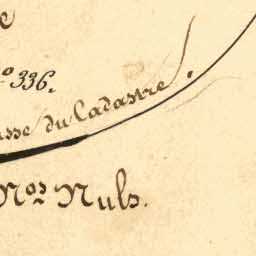 e
º 336.
sse du Cadastre
Nos Nuls.